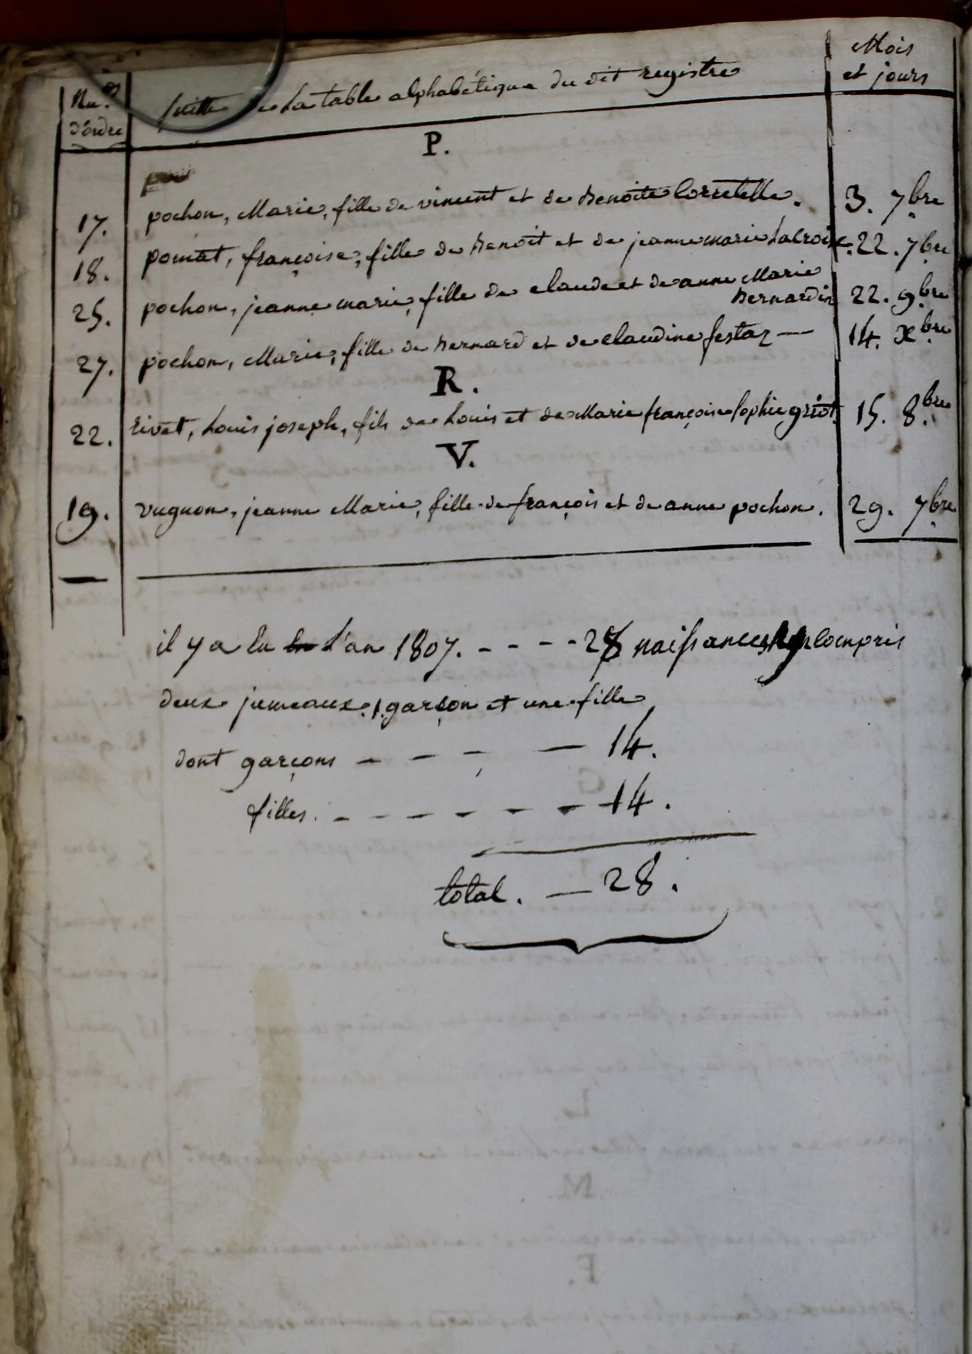 Nu.os d'ordre
suitte de la table alphabétique du dit registre
Mois et jours
P.
17. pochon, Marie, fille de vincent et de benoite Corretelle. 3. 7bre
18. pomat, françoise, fille de benoit et de jeanne marie Lacroix. 22. 7bre
25. pochon, jeanne marie, fille de claude et de anne Marie bernardin 22. 9bre
27. pochon, Marie, fille de bernard et de claudine festaz — 14. xbre
R.
22. rivet, Louis joseph, fils de Louis et de Marie françoise sophie griot. 15. 8bre
V.
19. vugnon, jeanne Marie, fille de françois et de anne pochon. 29. 7bre
il y a eu en l'an 1807. - - - - 28 naissances, y compris
deux jumeaux, 1 garçon et une fille
dont garçons - - - — 14.
filles. - - - - - - 14.
total. — 28.